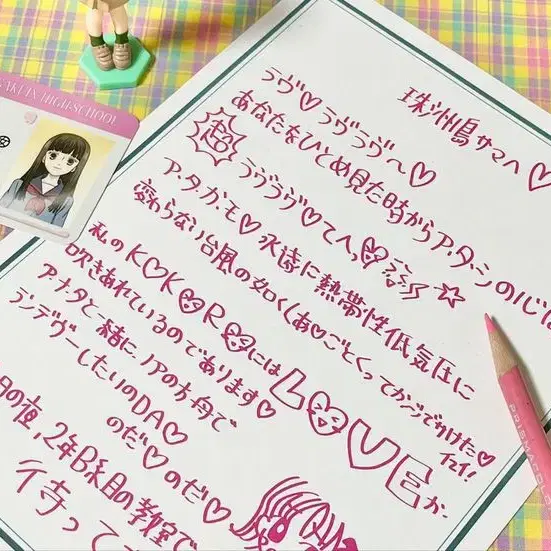 HIGH-SCHOOL
珠洲島サマへ♡
ラヴ♡ラヴラヴ〜♡
あなたをひとめ見た時からア・タ・シの心は
超ラヴラヴ♡てへ♡
ア・タ・カ・モ♡永遠に熱帯性低気圧に
変わらない台風の如く(あ♡ごとくってかごでかけた♡イエイ!
私のK♡K♡R♡にはL♡VEが
吹きあれているのであります♡
アナタと一緒にノアの方舟で
ランデヴーしたいのDA♡
のだ♡のだ♡
日の夜、2年B組の教室で
待って
PRISMACOLO